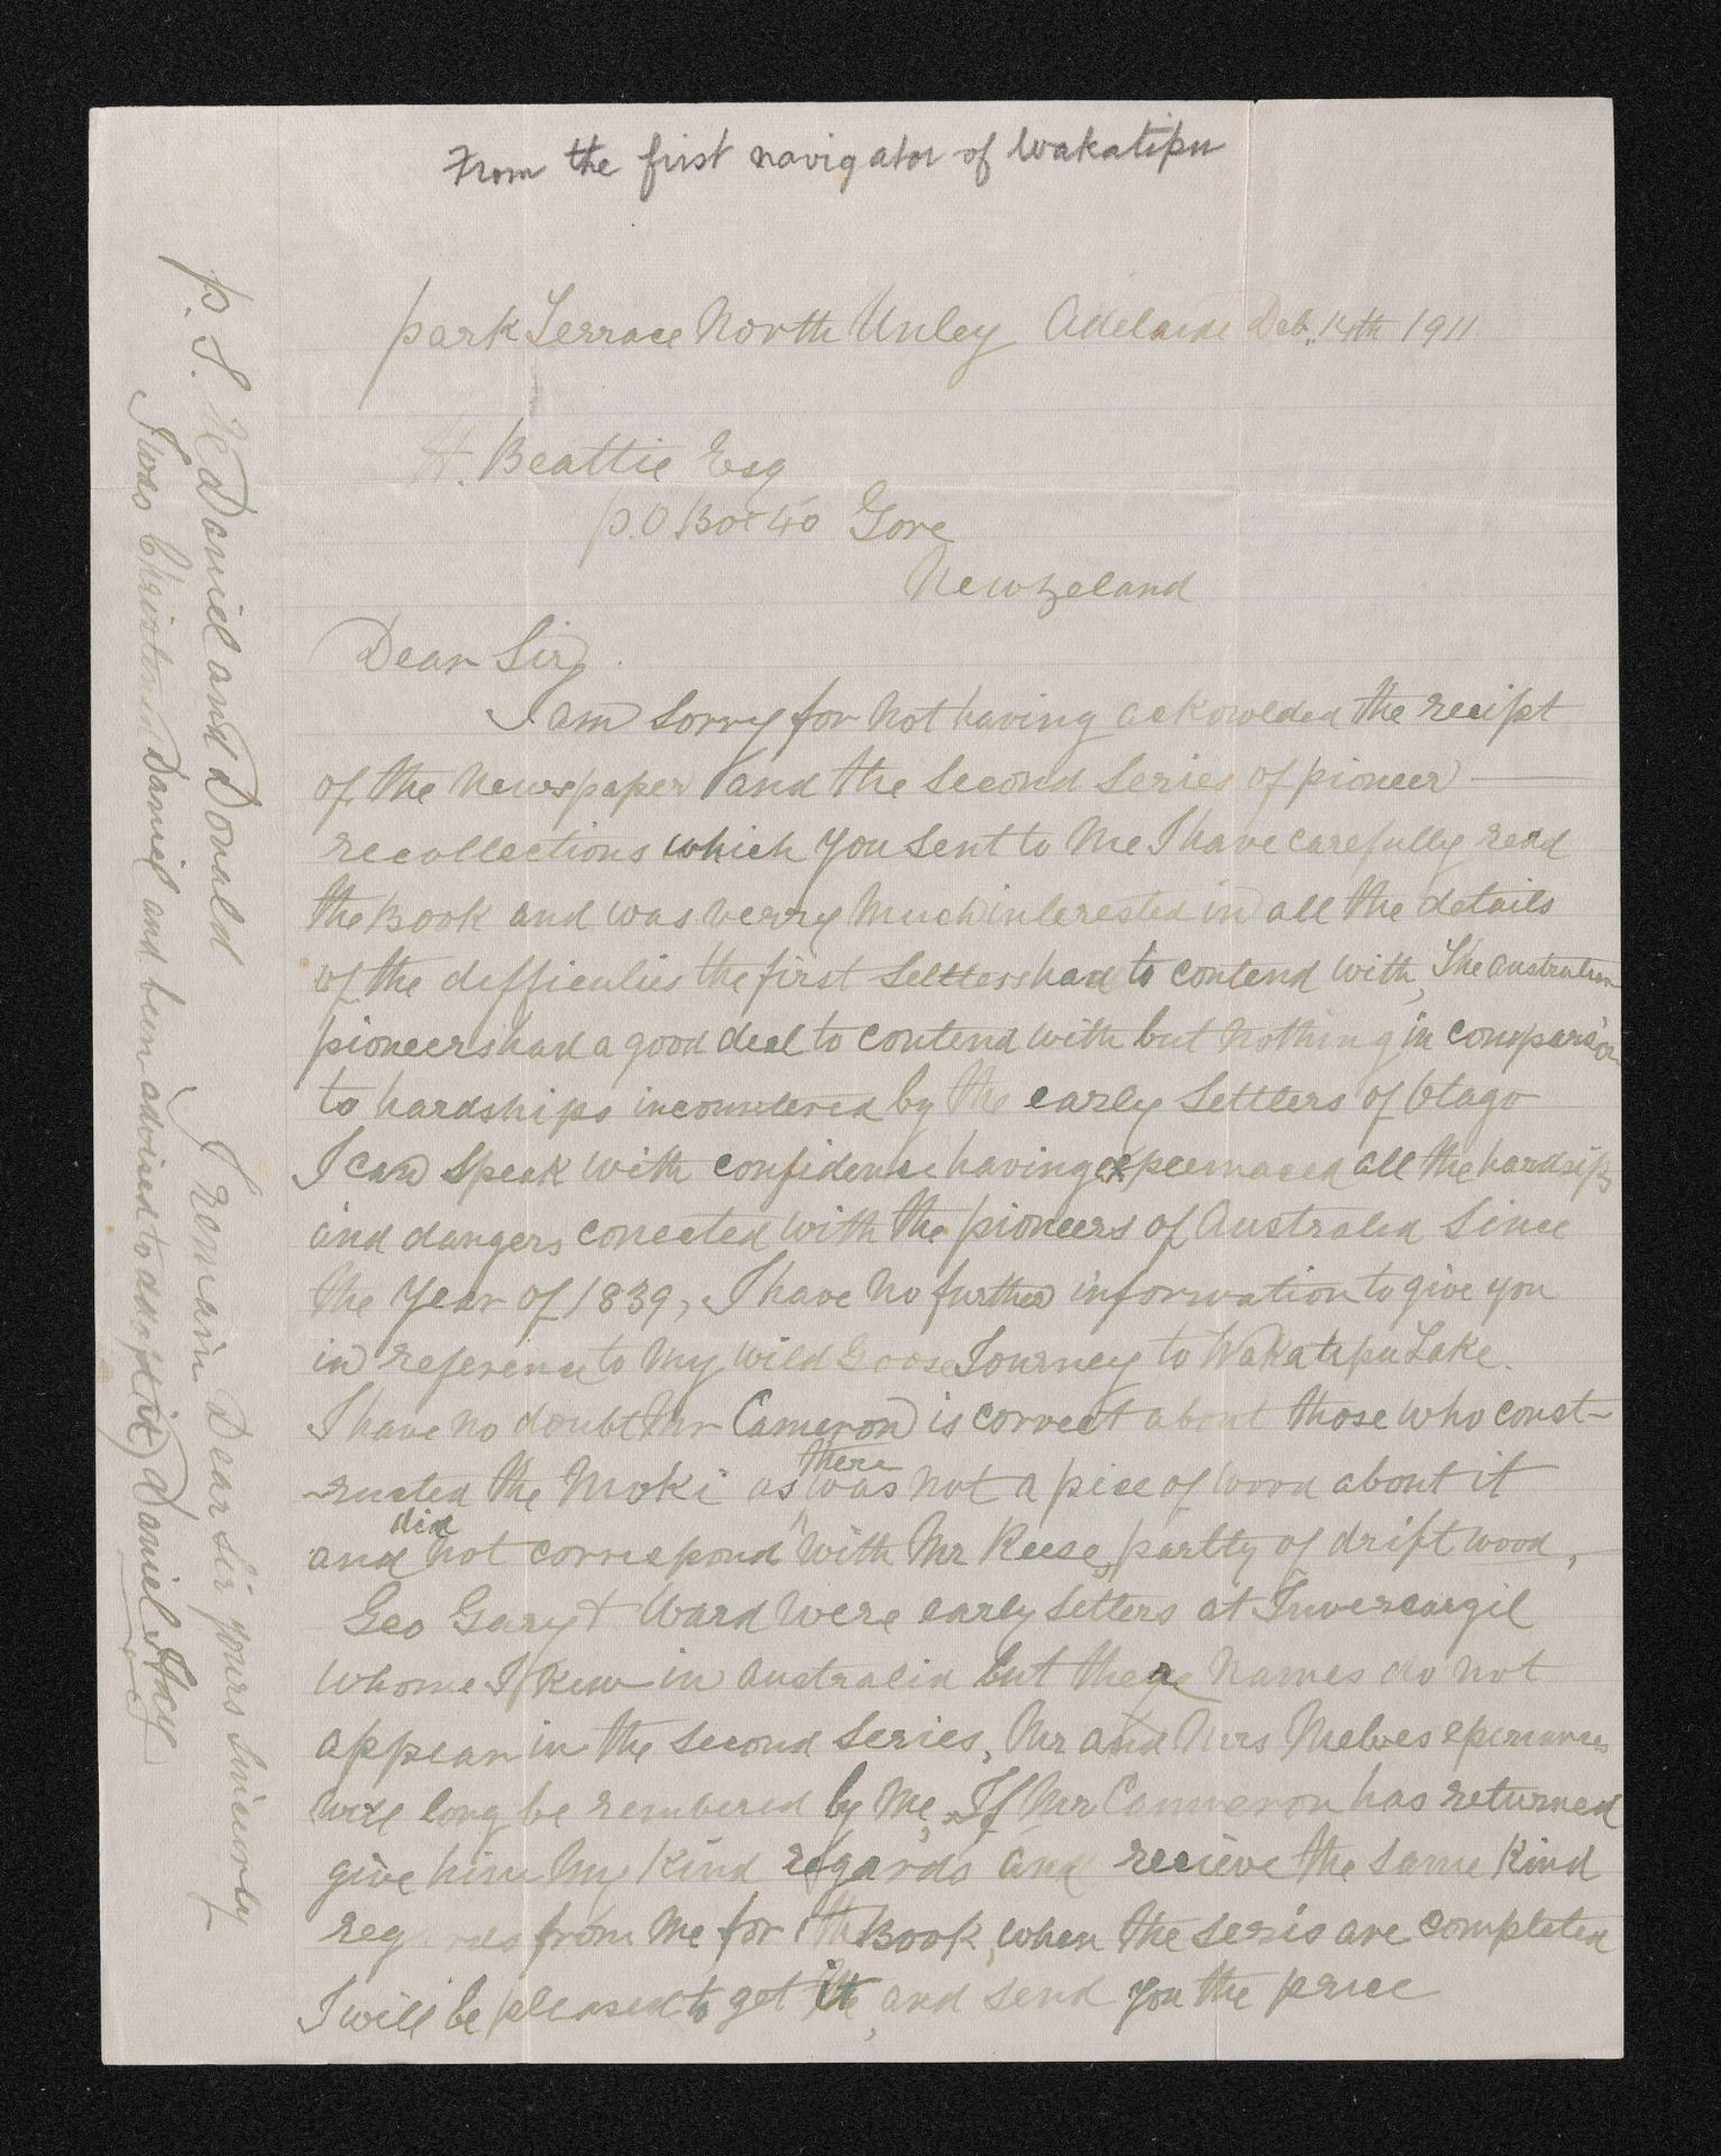 From the first navigator of Wakatipu
park Terrace North Unley Adelaide Deb. 14th 1911
H. Beattie Esq
p.O Box 40 Gore
Newzeland
Dear Sir
I am Sorry for not having ackowleded the recipt
of the Newspaper and the Second Series of pioneer
recollections which you Sent to Me I have carefully read
the Book and was verry Much interested in all the details
of the difficulies the first Settlesshad to contend with, The Australian
pioneers had a good deal to contend with but Nothing in comparsion
to hardships incountered by the early Settlers of Otago
I can Speak with confidence having all the hardsips
and dangers conected with the pioneers of Australia Since
the Year of 1839, I have No further information to give you
in reference to My Wild Goose Journey to Wakatipu Lake.
I have no doubt Mr Cameron is correct about those who const-
-ructed the Moki as there was Not a piece of Wood about it
and did Not correspond with Mr Reese partty of drift wood,
Geo Gary + Ward Were early Setters at Invercargil
whome I Kew in Australia but there Names do Not
appear in the Second Series, Mr and Mrs Melves
Will long be rembered by Me, If Mr Cammeron has returned
give him My Kind regards and recieve the Same Kind
regards from Me for the Book, when the seris are completed
I will be pleased to get it, and Send you the price
p. S. Mc Daniel and Donald I remain Dear Sir yours Sincerly
I was Christened Daniel and been advised to adopt it Daniel